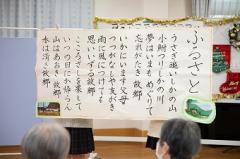 ふるさと
うさぎ追いしかの山
小鮒つりしかの川
夢はいまもめぐりて
忘れがたき故郷
いかにいます父母
つつがなしや友がき
雨に風につけても
思いいずる故郷
こころざしを果して
いつの日にか帰らん
山はあおき故郷
水は清き故郷